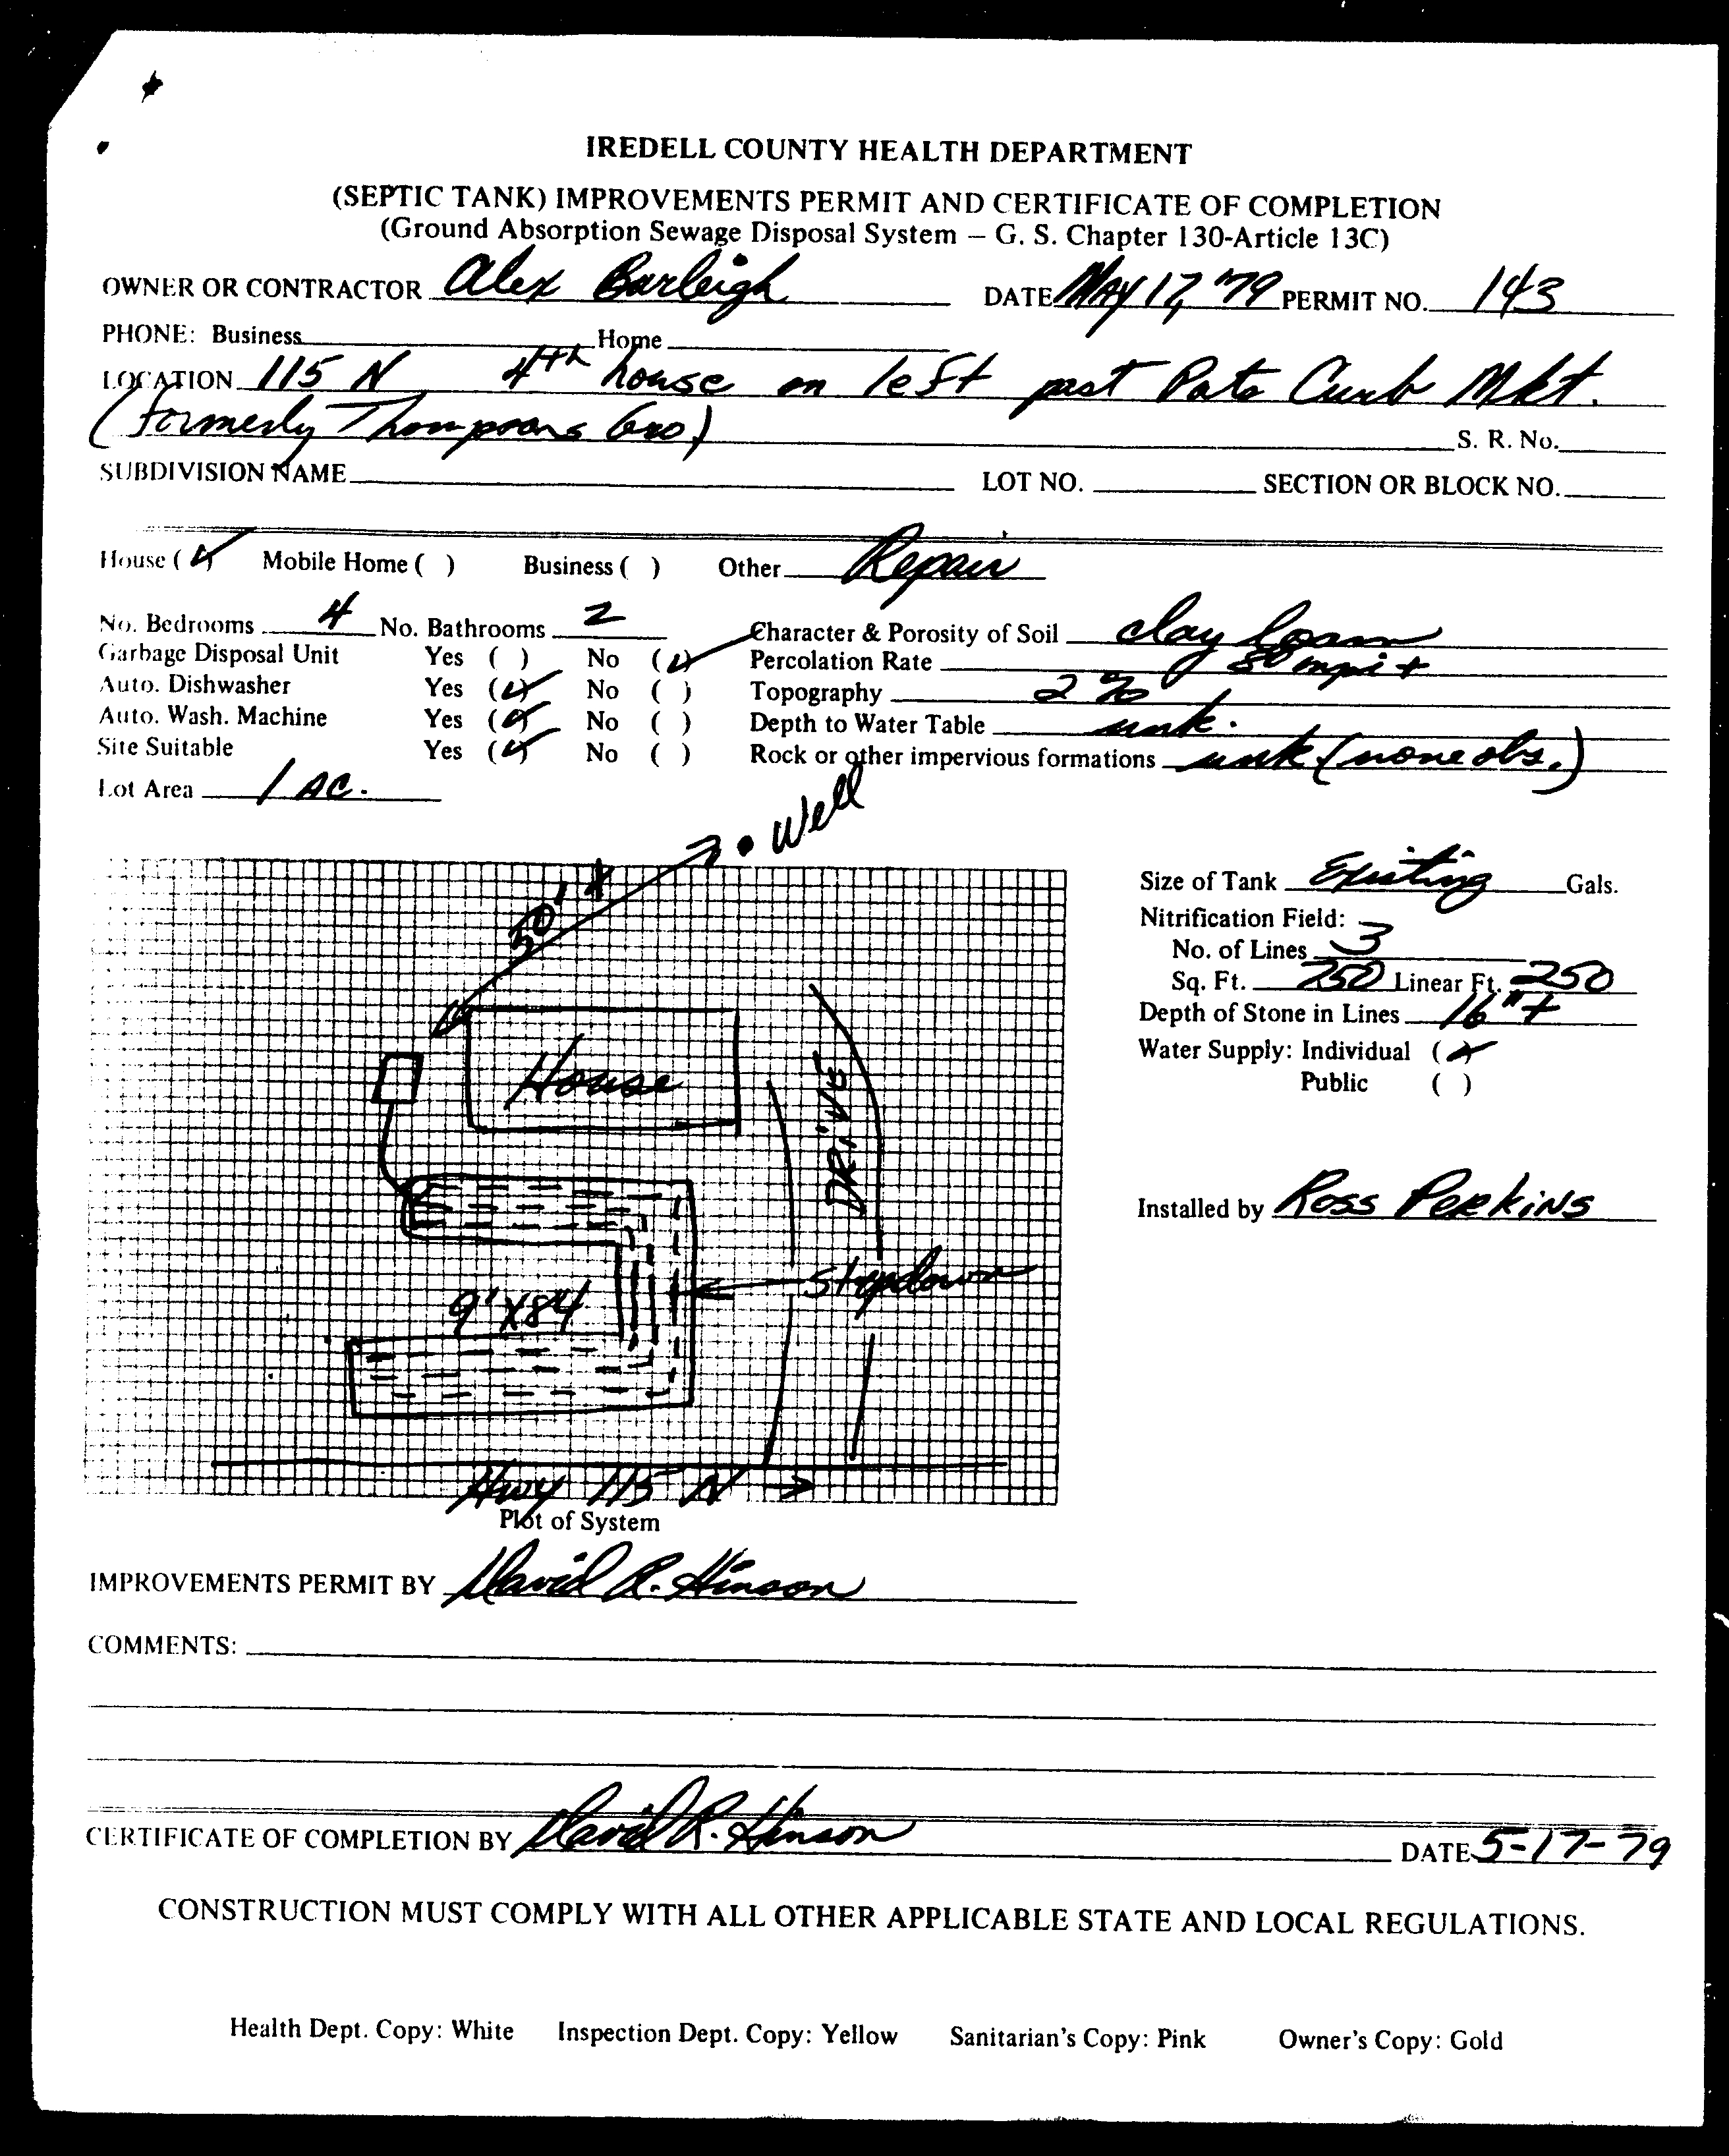 IREDELL COUNTY HEALTH DEPARTMENT
(SEPTIC TANK) IMPROVEMENTS PERMIT AND CERTIFICATE OF COMPLETION
(Ground Absorption Sewage Disposal System – G. S. Chapter 130-Article 13C)
OWNER OR CONTRACTOR Alex Burleigh DATE May 17, '79 PERMIT NO. 143
PHONE: Business Home
LOCATION 115 N 4th house on left past Pats Curb Mkt.
(formerly Thompsons Gro) S. R. No.
SUBDIVISION NAME LOT NO. SECTION OR BLOCK NO.
House ( ✓ ) Mobile Home ( ) Business ( ) Other Repair
No. Bedrooms 4 No. Bathrooms 2 Character & Porosity of Soil clay loam
Garbage Disposal Unit Yes ( ) No ( ✓ ) Percolation Rate 50 mpi +
Auto. Dishwasher Yes ( ✓ ) No ( ) Topography 2 %
Auto. Wash. Machine Yes ( ✓ ) No ( ) Depth to Water Table unk.
Site Suitable Yes ( ✓ ) No ( ) Rock or other impervious formations unk (none obs.)
Lot Area 1 AC.
Well
50' +
Size of Tank Existing Gals.
Nitrification Field:
No. of Lines 3
Sq. Ft. 750 Linear Ft. 250
Depth of Stone in Lines 16" +
Water Supply: Individual ( ✓ )
Public ( )
House
DRIVE
Installed by Ross Perkins
Stepdown
9' X 84
Hwy 115 N →
Plot of System
IMPROVEMENTS PERMIT BY David R. Hinson
COMMENTS:
CERTIFICATE OF COMPLETION BY David R. Hinson DATE 5-17-79
CONSTRUCTION MUST COMPLY WITH ALL OTHER APPLICABLE STATE AND LOCAL REGULATIONS.
Health Dept. Copy: White Inspection Dept. Copy: Yellow Sanitarian's Copy: Pink Owner's Copy: Gold